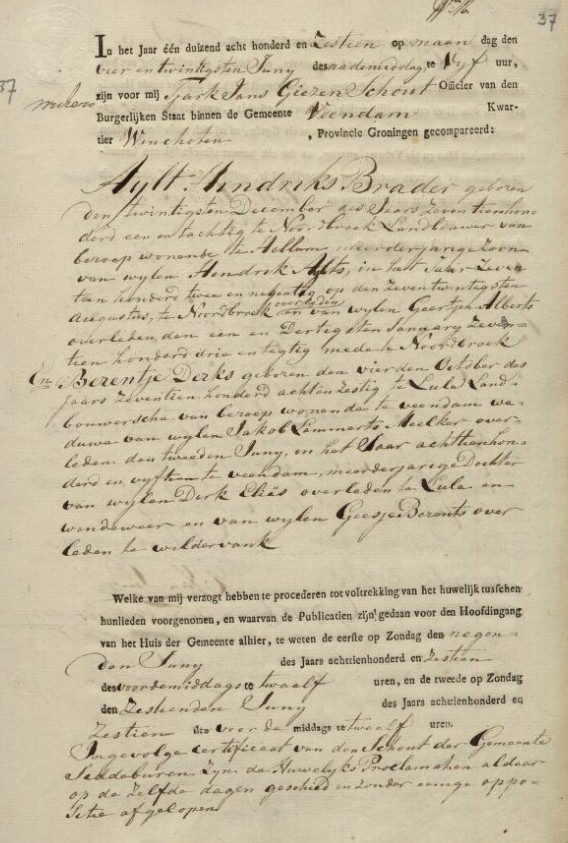 37
37
In het Jaar één duizend acht honderd en Zestien op maan dag den
vier en twintigsten Juny des nademiddag, te Vyf uur,
zijn voor mij Tjark Jans Giezen Schout Officier van den
Burgerlijken Staat binnen de Gemeente Veendam Kwar-
tier Winschoten , Provincie Groningen gecompareerd:
Aylt Hindriks Brader geboren
den twintigsten December des Jaars Zeventienhon
derd een en tachtig te Noordbroek Landbouwer van
beroep wonende te meerderjarige Zoon
van wylen Hindrik Alts, in hist Jaar Zeven
tien honderd twee en negentig op den Zeven twintigsten
overleden
augustus, te Noordbroek en van wylen Geertjen Alberts
overleden den een en Dertigsten January Zeven-
tien honderd drie en tagtig mede te Noordbroek
En Berentje Derks geboren den vierden October des
Jaars Zeventien honderd achtenzestig te Lula Land
bouwersche van beroep wonende te veendam we-
duwe van wylen Jakob Lammerts Meelker over-
leden den tweeden Juny, in het Jaar achttienhon-
derd en vyftien te veendam, meerderjarige Dochter
van wylen Derk Eliës overleden te Lula en
windeweer en van wylen Geesje Berents over
leden te wildervank
Welke van mij verzogt hebben te procederen tot voltrekking van het huwelijk tusschen
hunlieden voorgenomen, en waarvan de Publicatien zijn gedaan voor den Hoofdingang
van het Huis der Gemeente alhier, te weten de eerste op Zondag den negen-
den Juny des Jaars achttienhonderd en Zestien
des voordemiddags te twaalf uren, en de tweede op Zondag
den Zestienden Juny des Jaars achttienhonderd en
Zestien des voorde middags te twaalf uren.
Ingevolge certificaat van den Schout der Gemeente
Siddeburen Zyn de Huwelyks Proclamatien aldaar
op de Zelfde dagen geschied en zonder eenige oppo-
Sitie afgelopen